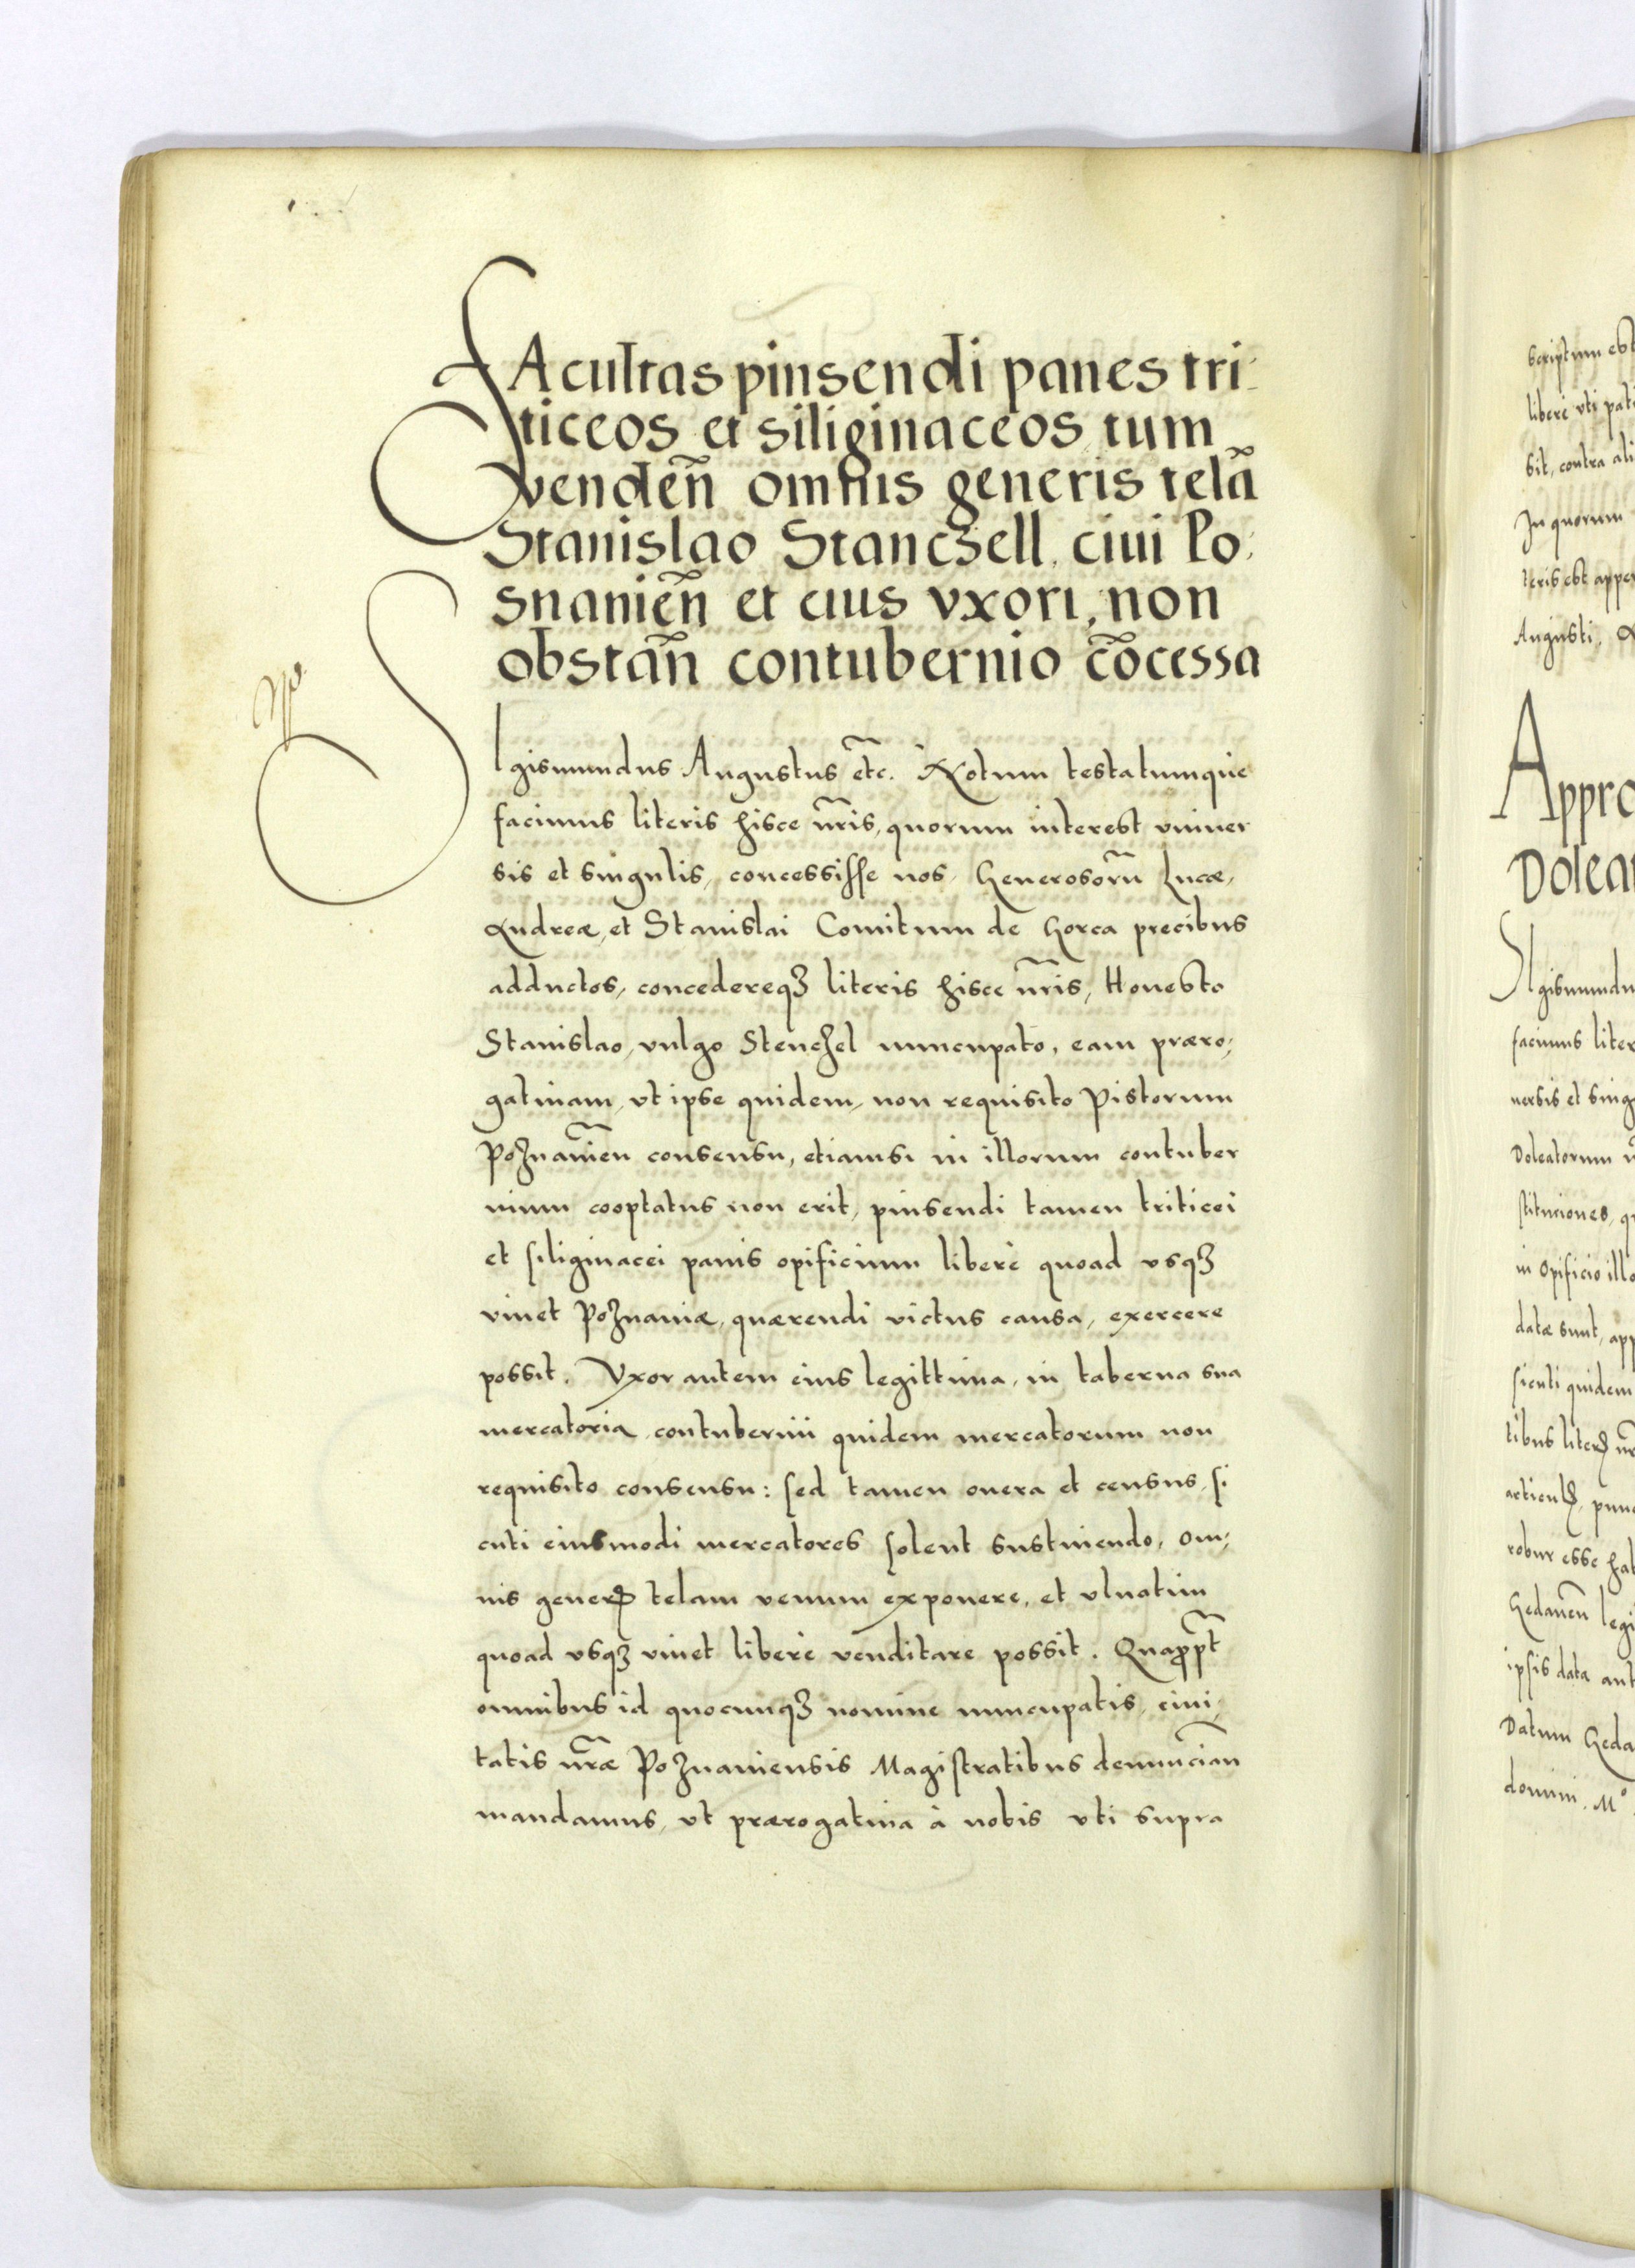 FAcultas pinsendi panes tri-
ticeos et siliginaceos, tum
vendeñ omnis generis telã
Stanislao Stanczell, ciui Po-
snanieñ et eius vxori, non
obstañ contubernio cõcessa
SIgismundus Augustus etc̃. Notum testatumque
facimus literis hisce nr̃is, quorum interest vniuer
sis et singulis, concessisse nos, Generosorũ Lucæ,
Andreæ, et Stanislai Comitum de Gorca precibus
adductos, concedereqꝫ literis hisce nr̃is, Honesto
Stanislao, vulgo Stenczel nuncupato, eam præro-
gatiuam, vt ipse quidem, non requisito Pistorum
Poznanień consensu, etiamsi in illorum contuber
nium cooptatus non erit, pinsendi tamen triticei
et siliginacei panis opificium liberè quoad vsqꝫ
viuet Poznaniæ, quærendi victus causa, exercere
possit. Vxor autem eius legittima, in taberna sua
mercatoria, contubernii quidem mercatorum non
requisito consensu: sed tamen onera et census, si
cuti eiusmodi mercatores solent sustinendo, om-
nis generꝭ telam venum exponere, et vlnatim
quoad vsqꝫ viuet liberè venditare possit. Quaꝓpt̃
omnibus id quocunqꝫ nomine nuncupatis, ciui-
tatis nr̃æ Poznaniensis Magistratibus denunciañ
mandamus, vt prærogatiua à nobis vti supra
scriptum est
libere vti pati
sit, contra ali
In quorum
teris est appen
Augusti,
Appro
Dolea
SIgismundu
facimus liter
uersis et sing
Doleatorum
stituciones, q
in Opificio illo
datæ sunt, app
sicuti quidem
tibus literꝭ nr̃
articulꝭ, punc
robur esse hab
Gedaneñ legi
ipsis data ant
Datum Geda
domini. Mº